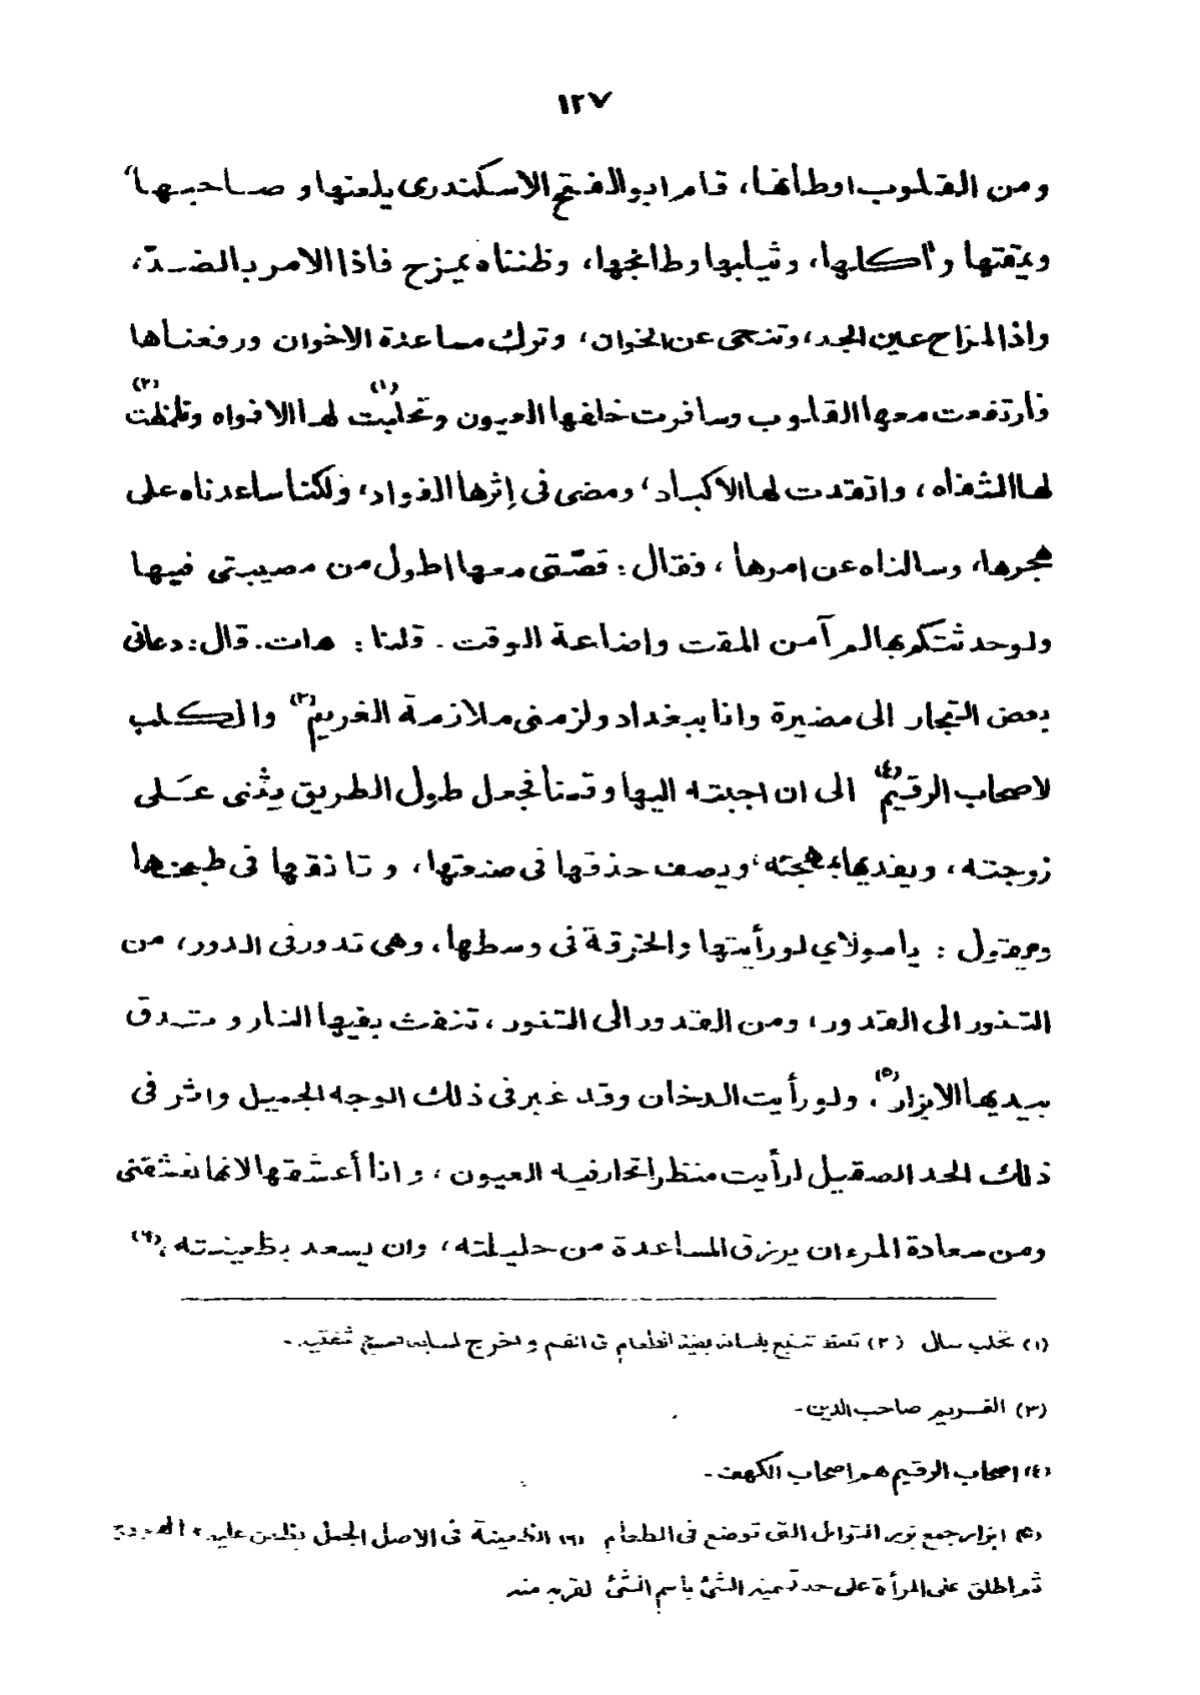 ١٢٧
ومن القلوب اوطانها، قام ابو الفتح الاسكندرى يلعنها و صاحبها،
ويمقتها وآكلها، ويثلبها وطابخها، وظنناه يمزح فاذا الامر بالضدّ،
واذا المزاح عين الجد، وتنحى عن الخوان، وترك مساعدة الاخوان ورفعناها
فارتفعت معها القلوب وسافرت خلفها العيون وتحلبت (١) لها الافواه وتلمظت (٢)
لها الشفاه، واتقدت لها الاكباد، ومضى فى إثرها الفواد، ولكنا ساعدناه على
هجرها، وسالناه عن امرها، فقال: قصّتى معها اطول من مصيبتى فيها
ولوحدثتكم بها لم آمن المقت وإضاعة الوقت. قلنا: هات. قال: دعانى
بعض التجار الى مضيرة وانا ببغداد ولزمنى ملازمة الغريم (٣) والكلب
لاصحاب الرقيم (٤) الى ان اجبته اليها وقمنا فجعل طول الطريق يثنى عَلى
زوجته، ويفديها بمهجته، ويصف حذقها فى صنعتها، و تا نقها فى طبخها
ويقول: يا مولاي لو رأيتها والخرقة فى وسطها، وهى تدور فى الدور، من
التنور الى القدور، ومن القدور الى التنور، تنفث بفيها النار و تدق
بيديها الابزار (٥)، ولو رأيت الدخان وقد غبر فى ذلك الوجه الجميل واثر فى
ذلك الخد الصقيل لرأيت منظرا تحار فيه العيون، و انا أعشقها لانها تعشقنى
ومن سعادة المرء ان يرزق المساعدة من حليلته، وان يسعد بظعينته، (٦)
(١) تحلب سال (٢) تلمظ تتبع بلسانه بقية الطعام فى الفم و اخرج لسانه فمسح شفتيه.-
(٣) الغريم صاحب الدين-
(٤) اصحاب الرقيم هم اصحاب الكهف-
(٥) ابزار جمع بزر التوابل التى توضع فى الطعام (٦) الظعينة فى الاصل الجمل يظعن عليه، الهودج
ثم اطلق على المرأة على حد تسمية الشئ باسم الشئ لقربه منه